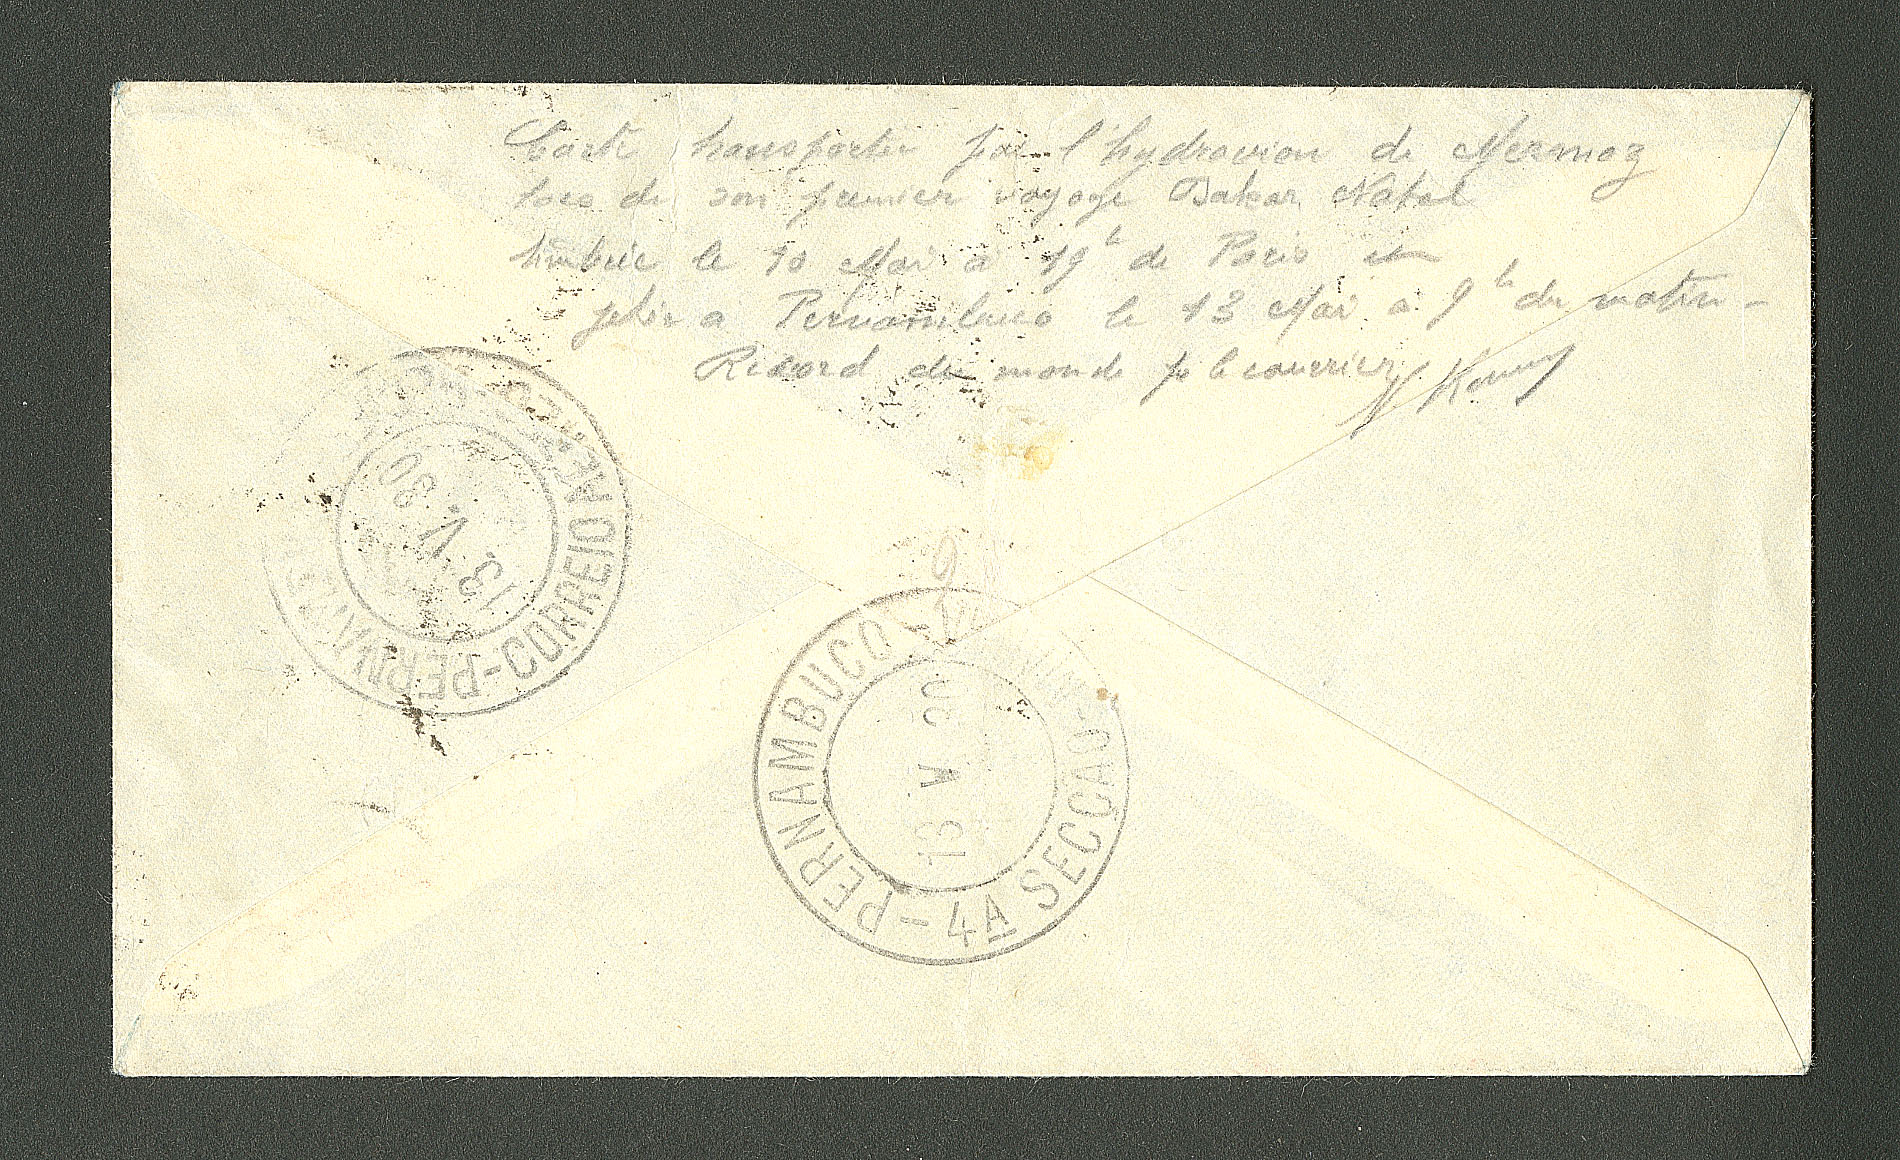 Carte transportée par l'hydravion de Mermoz
lors de son premier voyage Dakar Natal
timbrée le 10 Mai à 19h de Paris
à Pernambuco le 13 Mai à 9h du matin -
Record du monde pr le courrier
PERNAMBUCO
13 V 30
4A SECÇÃO
PERNAMB
CORREIO AEREO
13 V. 30
9